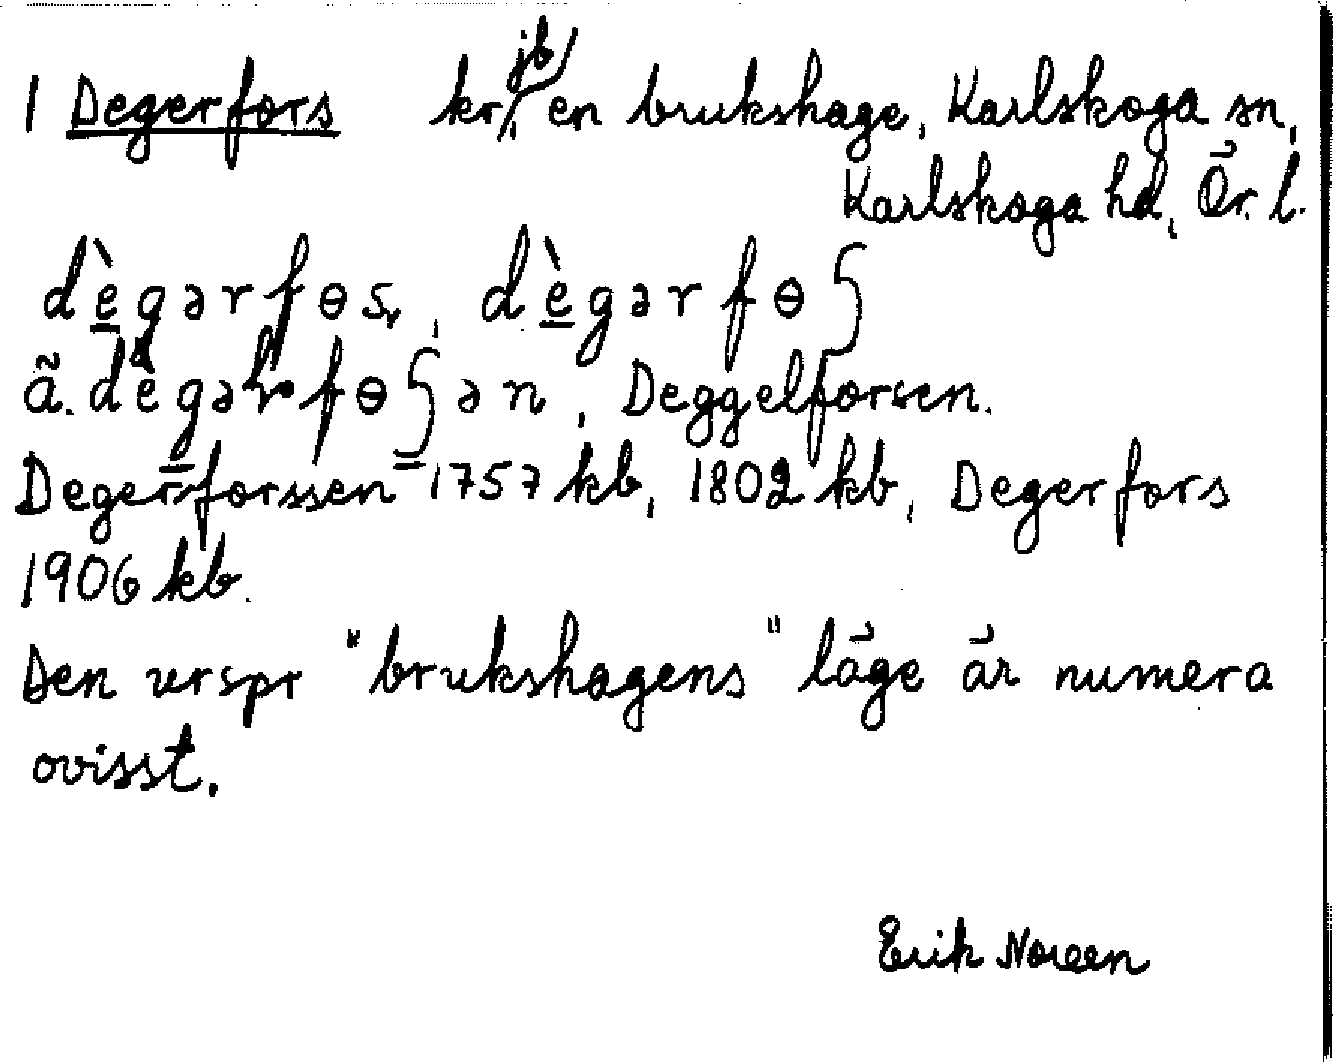 1 Degerfors kr, jb, en brukshage, Karlskoga sn,
Karlskoga hd, Ör. l.
dè̲gərfɵs, dè̲gərfɵʃ
ã. dègəɽfɵʃən, Deggelforsen.
Degerforssen 1757 kb, 1802 kb, Degerfors
1906 kb.
Den urspr "brukshagens" läge är numera
ovisst.
Erik Noreen